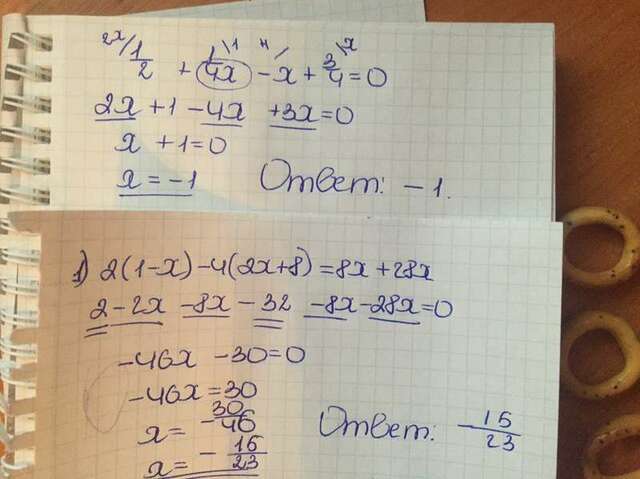 2x/ 1/2 + 1/4x \1 - x 4/ + 3/4 \x = 0
2x + 1 - 4x + 3x = 0
x + 1 = 0
x = -1 Ответ: -1.
1) 2(1-x) - 4(2x+8) = 8x + 28x
2 - 2x - 8x - 32 - 8x - 28x = 0
-46x - 30 = 0
-46x = 30
x = -30/46
x = -15/23 Ответ: -15/23